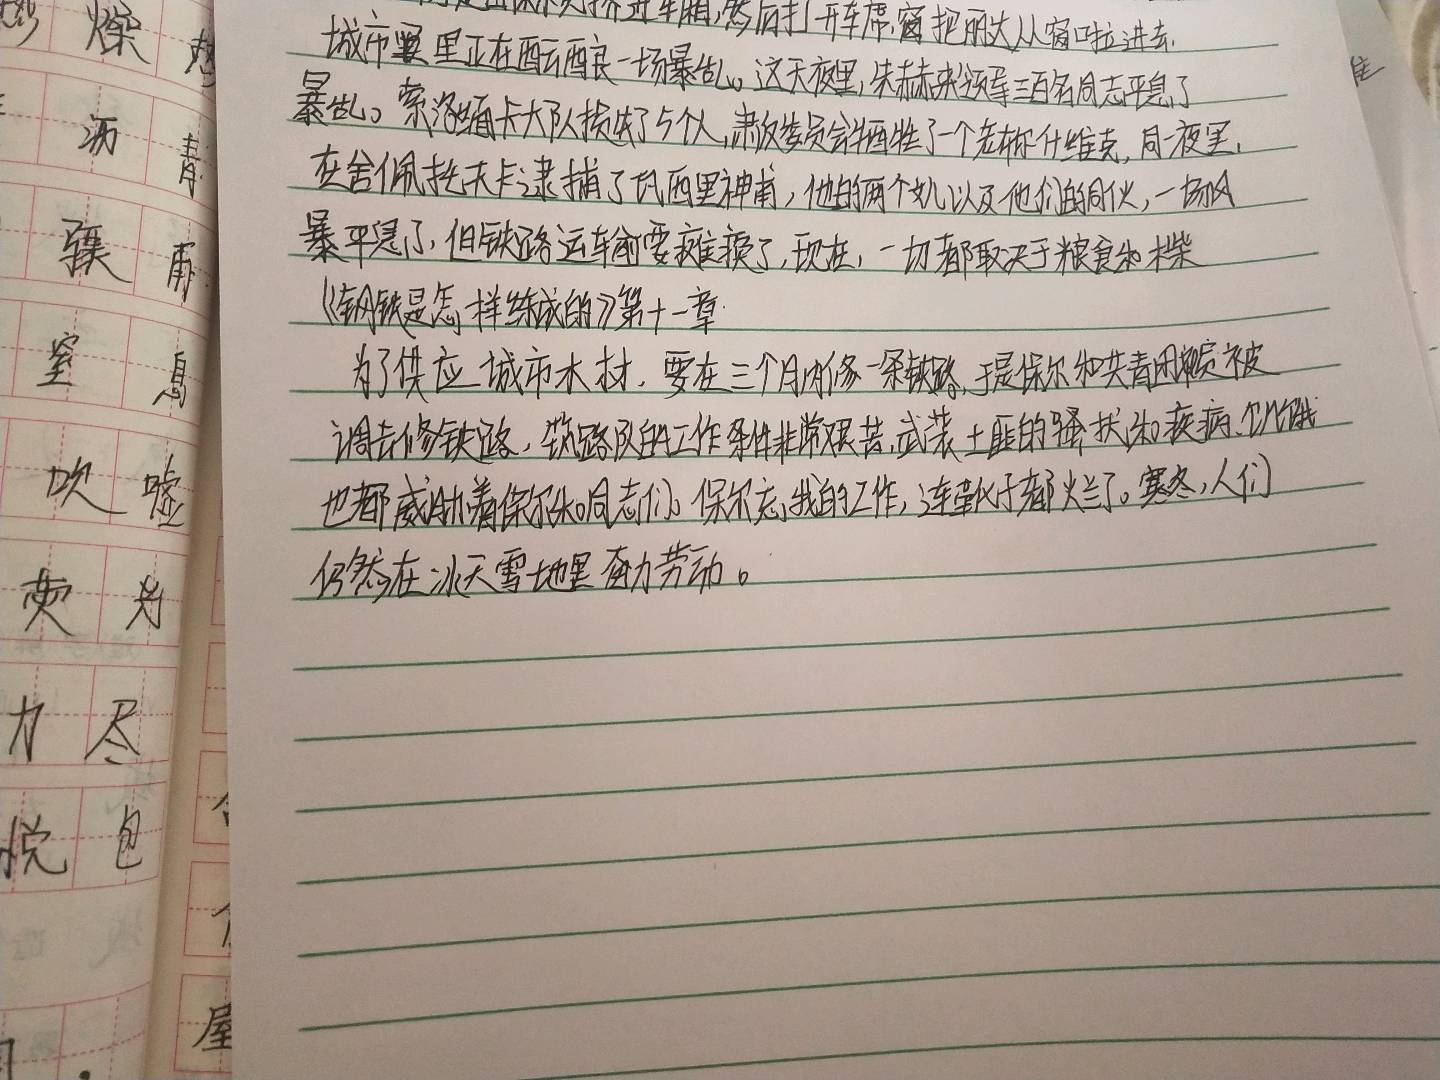 保尔先挤进车厢,然后打开车席窗把丽达从窗口拉进去.
城市里正在酝酿一场暴乱。这天夜里,朱赫来领导三百名同志平息了
暴乱。索洛缅卡大队损失了5个人,肃反委员会牺牲了一个老布尔什维克,同一夜里,
在舍佩托夫卡逮捕了瓦西里神甫,他的两个女儿以及他们的同伙,一场风
暴平息了,但铁路运车前要瘫痪了,现在,一切都取决于粮食和木柴
《钢铁是怎样练成的》第十一章
为了供应城市木材,要在三个月内修一条铁路,于是保尔和共青团员被
调去修铁路,筑路队的工作条件非常艰苦,武装土匪的骚扰和疾病、饥饿
也都威胁着保尔和同志们。保尔忘我的工作,连靴子都烂了。寒冬,人们
仍然在冰天雪地里奋力劳动。
燥 热
沥 青
骥 甫
窒 息
吹 嘘
力 尽
悦
屋